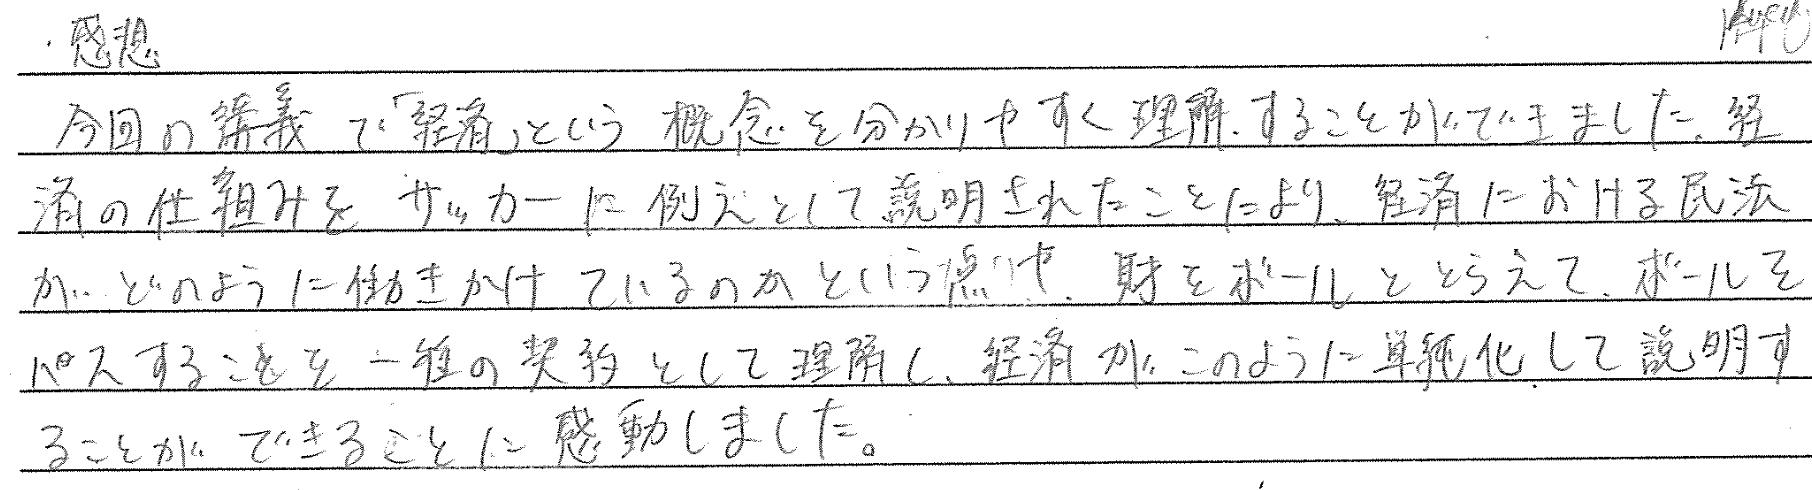 ・感想
今回の講義で「経済」という概念を分かりやすく理解することができました。経
済の仕組みをサッカーに例えとして説明されたことにより、経済における民法
がどのように働きかけているのかという点や、財をボールととらえて、ボールを
パスすることを一種の契約として理解し、経済がこのように単純化して説明す
ることができることに感動しました。